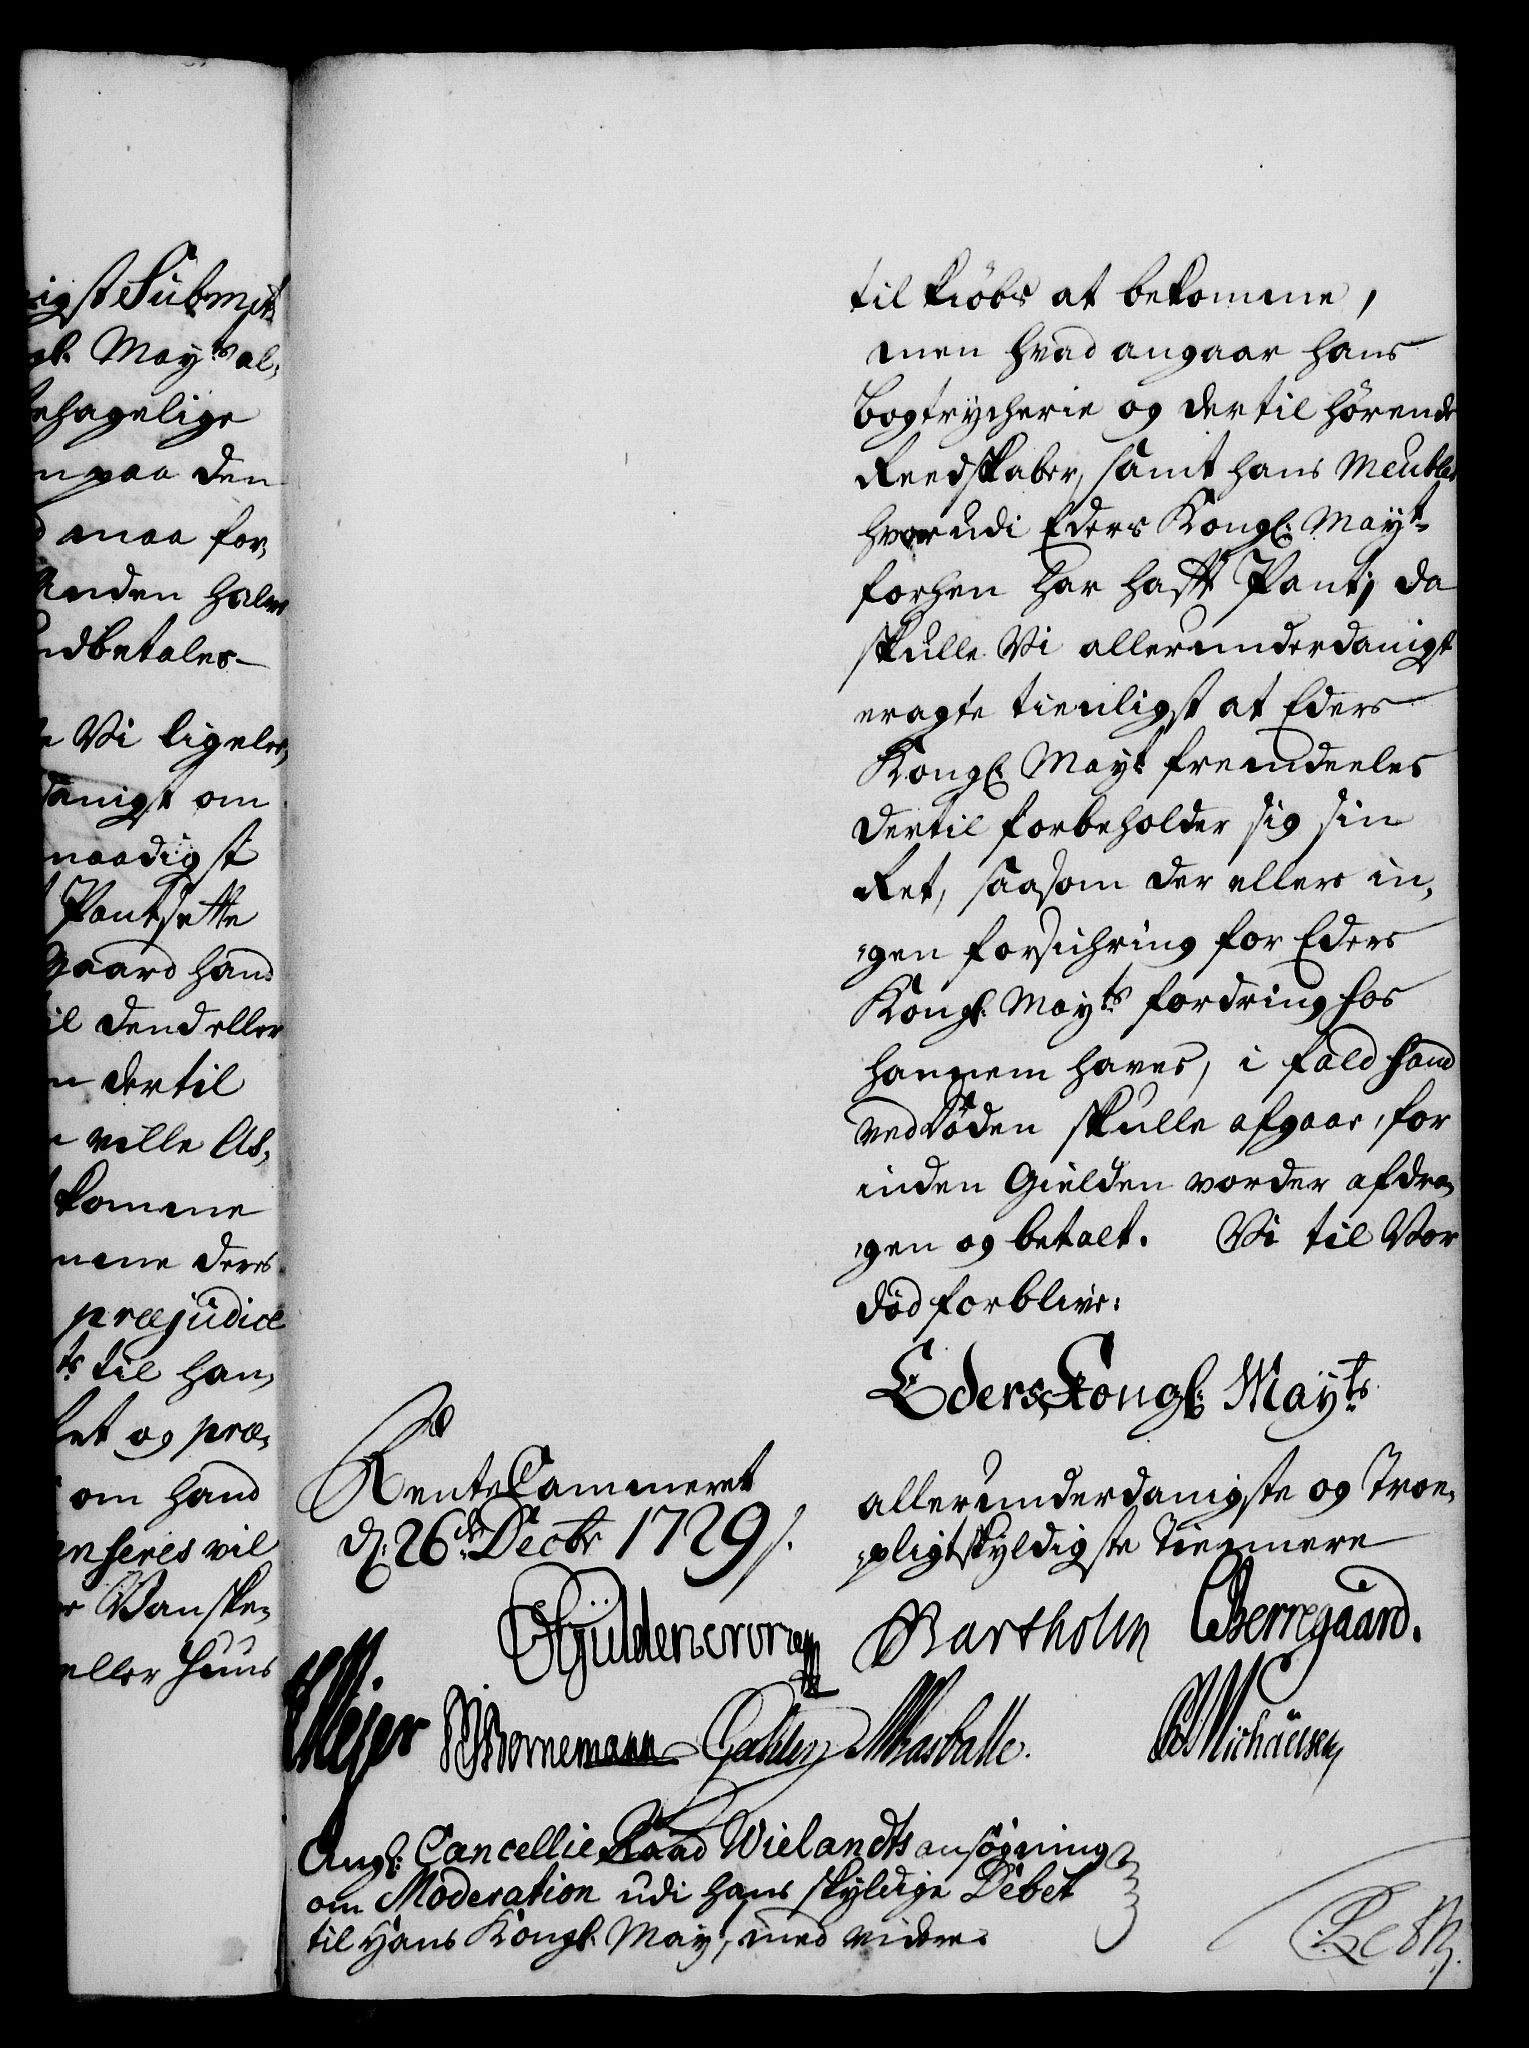 igst Submit
gl. Mayts al,
behagelige
n paa den
d maa for,
Anden halve
udbetales
e Vi ligeles,
danigst om
naadigst
Pantsette
Gaard hand
til dend eller
n dertil
e ville As,
komme
mme deres
præjudice
ts til han,
Ret og præ,
om hand
enseres vil
r Vanske,
eller huus
til kiöbs at bekomme,
men hvad angaar hans
Bogtrycherie og dertil hörende
Reedskaber, samt hans Meubler
hvorudi Eders Kongl: Mayt
forhen har hafft Pant; da
skulle Vi allerunderdanigst
eragte tienligst at Eders
Kongl. Mayt fremdeeles
dertil forbeholder sig sin
Ret, saasom der ellers in,
,gen forsichring for Eders
Kongl. Mayts fordring hos
hannem haves, i fald hand
ved Döden skulle afgaae, for
inden Gielden vorder afdra,
,gen og betalt. Vi til Vor
död forblive:
Eders Kongl: Mayts
allerunderdanigste og Troe,
,pligtskyldigste Tiennere
RenteCammeret
d: 26de Decbr 1729 /.
Güldencrone Bartholin CBerregaard.
EMejer Bornemann MHasballe. Michaelsen
Angl: Cancellie Raad Wielandts ansögning
om Moderation udi hans skyldige Debet
til Hans Kongl. May, med videre.